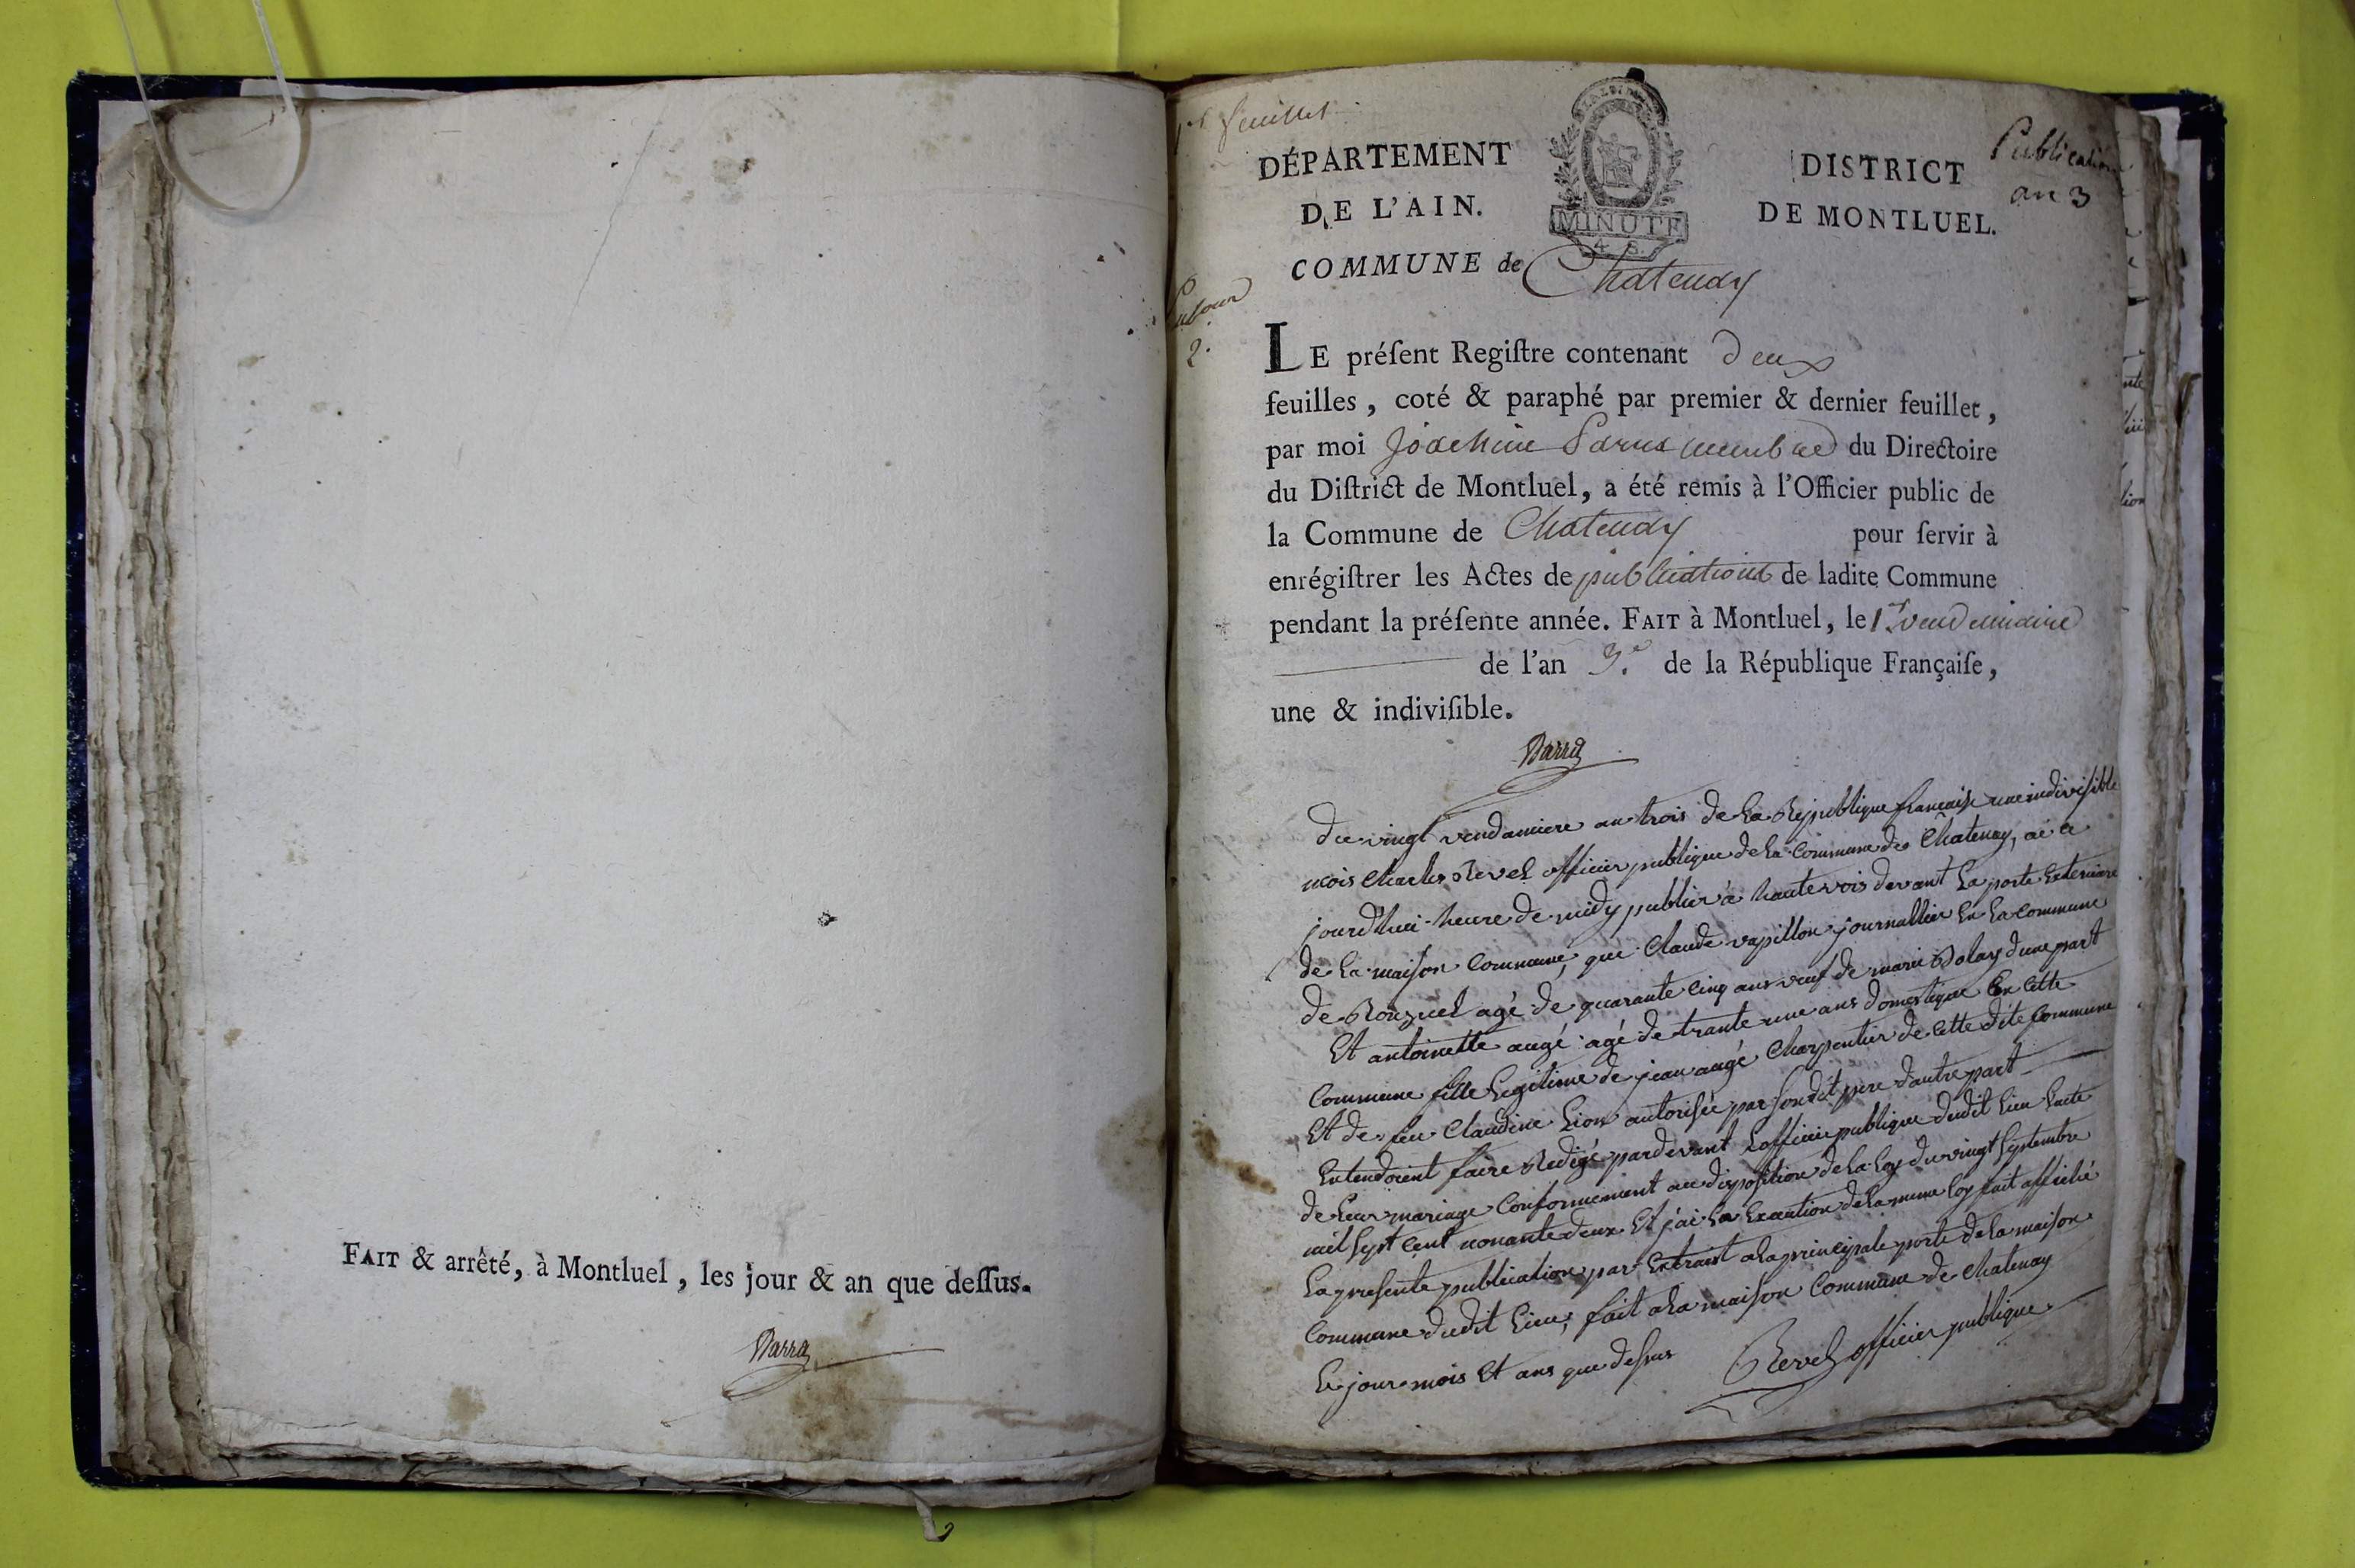 FAIT & arrêté, à Montluel, les jour & an que deſſus.
Barra
1er feuillet
Publications
an 3
DÉPARTEMENT
DE L'AIN.
MINUTE
4 S.
DISTRICT
DE MONTLUEL.
COMMUNE de Chatenay
2.
LE préſent Regiſtre contenant deux
feuilles, coté & paraphé par premier & dernier feuillet,
par moi Joachim Barra membre du Directoire
du Diſtrict de Montluel, a été remis à l'Officier public de
la Commune de Chatenay pour ſervir à
enrégiſtrer les Actes de publications de ladite Commune
pendant la préſente année. FAIT à Montluel, le 1er vendemiaire
de l'an 3.e de la République Françaiſe,
une & indiviſible.
Barra
du vingt vendamiere an trois de la Republique francaise une indivisible
mois Charles Revel officier publique de la Commune de Chatenay, ai a
jourd'huy heure de midy publier a haute vois devant la porte Exterieure
de la maison Commune, que Claude vapillon journallier En la Commune
de Ronzuel agé de quarante cinq ans veuf de marie Bolay d'une part
Et antoinette augé agé de trante une ans domestique En Cette
Commune fille Legitime de jean augé Charpentier de Cette dite Commune
Et de feu Claudine Lion autorisée par son dit pere d'autre part
Entendoient faire Redigé pardevant L'officier publique dudit lieu l'acte
de leur mariage Conformement au disposition de la Loy du vingt Septembre
mil Sept Cent nonante deux Et j'ai En Execution de la meme loy fait affiché
La presente publication par Extrait a la principale porte de la maison
Commune dudit Lieu, fait a la maison Commune de Chatenay
Le jour mois Et ans que dessus Revel officier publique